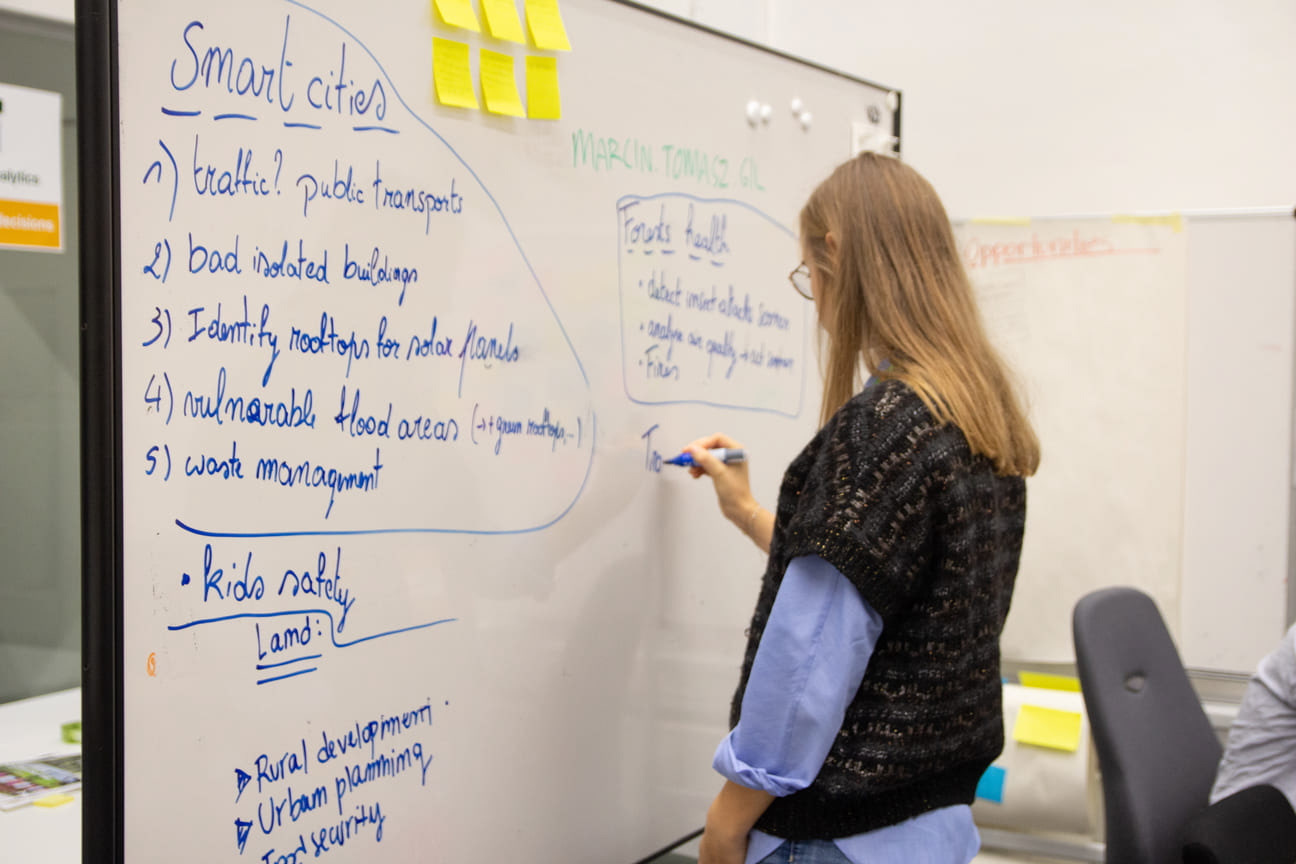 Smart cities
1) traffic? public transports
2) bad isolated buildings
3) Identify rooftops for solar panels
4) vulnarable flood areas (→+ green rooftops,..)
5) waste managment
• kids safety
Land:
Rural development
Urban planning
Food security
MARCIN.TOMASZ.GIL
Forests health
• detect insect attacks sooner
• analyse air quality → act
• Fires
Tra
Opportunities
alytics
decisions